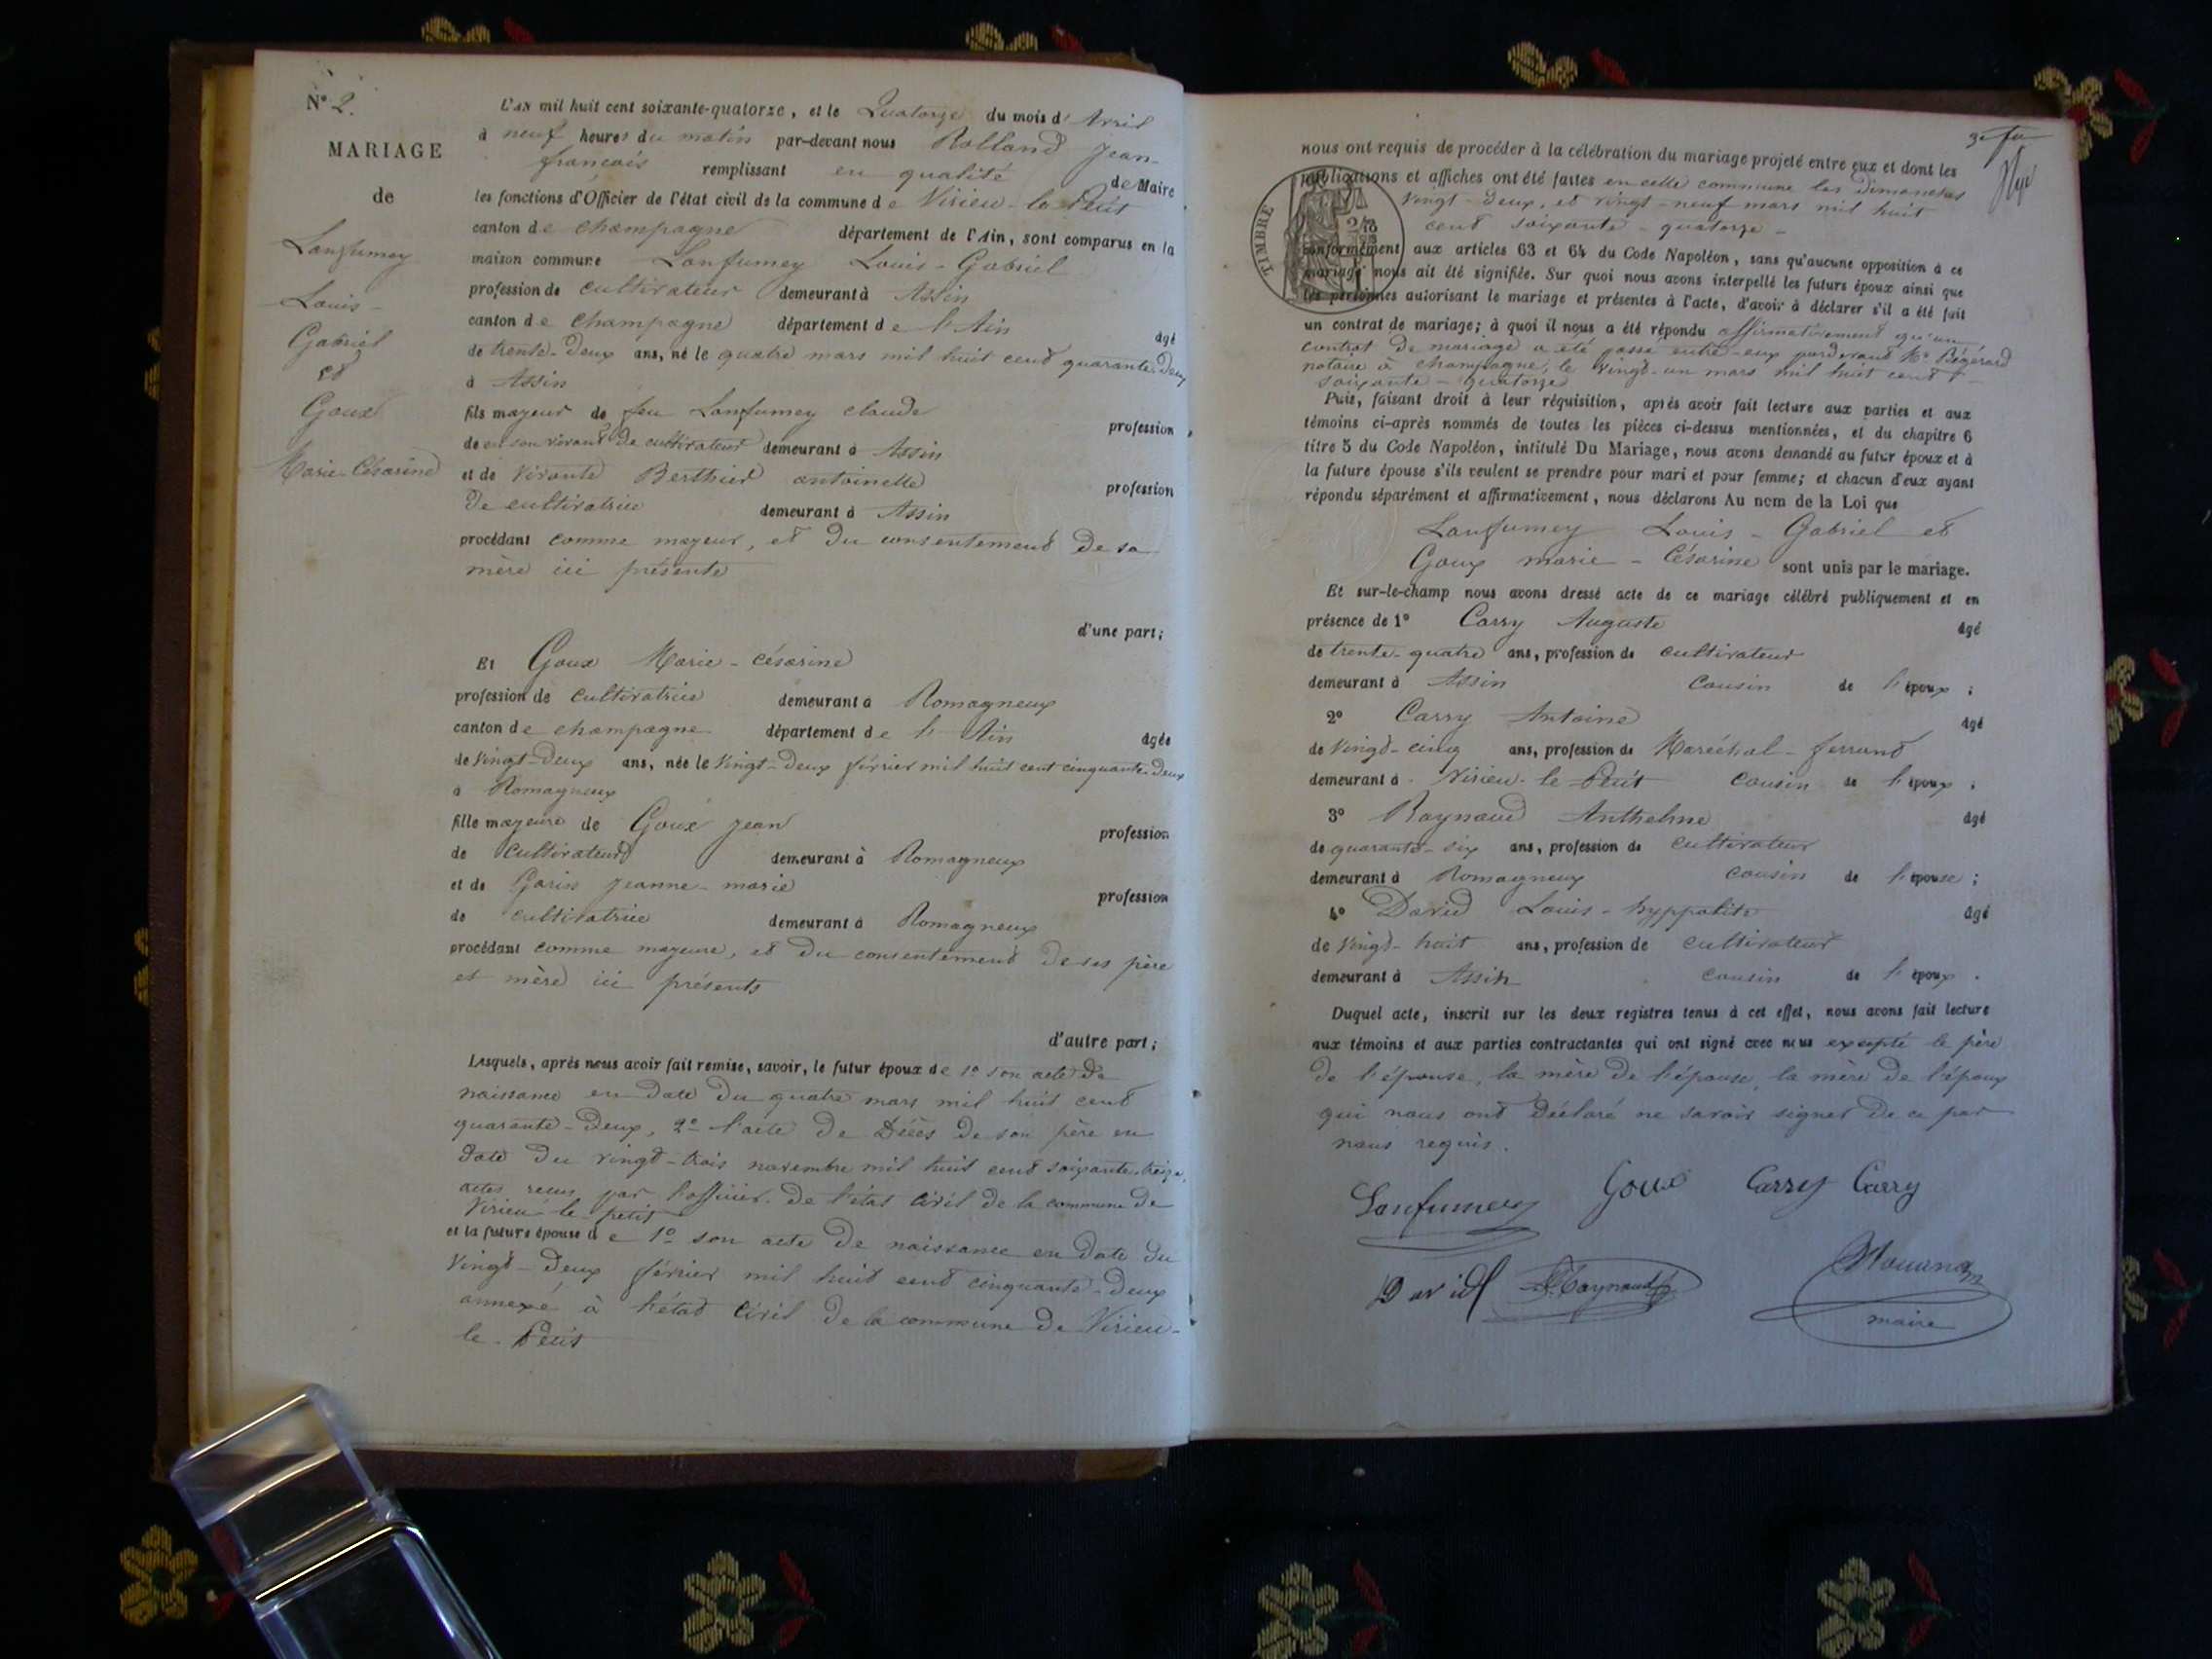 N° 2.
MARIAGE
de
Lanfumey
Louis-
Gabriel
et
Goux
Marie-Césarine
L'AN mil huit cent soixante-quatorze, et le Quatorze du mois d'Avril
à neuf heures du matin par-devant nous Rolland Jean-
françois remplissant en qualité de Maire
les fonctions d'Officier de l'état civil de la commune de Virieu-le-Petit
canton de Champagne département de l'Ain, sont comparus en la
maison commune Lanfumey Louis-Gabriel
profession de cultivateur demeurant à Assin
canton de Champagne département de l'Ain âgé
de trente-deux ans, né le quatre mars mil huit cent quarante-deux
à Assin
fils majeur de feu Lanfumey claude profession
de en son vivant de cultivateur demeurant à Assin
et de vivante Berthier antoinette profession
de cultivatrice demeurant à Assin
procédant comme majeur, et du consentement de sa
mère ici présente
d'une part;
Et Goux Marie-Césarine
profession de cultivatrice demeurant à Romagneux
canton de champagne département de l'Ain âgée
de vingt-deux ans, née le vingt-deux février mil huit cent cinquante-deux
à Romagneux
fille majeure de Goux Jean profession
de cultivateur demeurant à Romagneux
et de Garin Jeanne-marie profession
de cultivatrice demeurant à Romagneux
procédant comme majeure, et du consentement de ses père
et mère ici présents
d'autre part;
Lesquels, après nous avoir fait remise, savoir, le futur époux de 1° son acte de
naissance en date du quatre mars mil huit cent
quarante-deux, 2° l'acte de Décès de son père en
date du vingt-trois novembre mil huit cent soixante-treize,
actes reçus par l'officier de l'état civil de la commune de
Virieu-le-petit
et la future épouse de 1° son acte de naissance en date du
vingt-deux février mil huit cent cinquante-deux
annexé à l'état civil de la commune de Virieu-
le-Petit
nous ont requis de procéder à la célébration du mariage projeté entre eux et dont les
publications et affiches ont été faites en cette commune les dimanches
vingt-deux, et vingt-neuf mars mil huit
cent soixante-quatorze-
TIMBRE
conformément aux articles 63 et 64 du Code Napoléon, sans qu'aucune opposition à ce
mariage nous ait été signifiée. Sur quoi nous avons interpellé les futurs époux ainsi que
les personnes autorisant le mariage et présentes à l'acte, d'avoir à déclarer s'il a été fait
un contrat de mariage; à quoi il nous a été répondu affirmativement qu'un
contrat de mariage a été passé entre-eux pardevant Me Bégérard
notaire à champagne, le vingt-un mars mil huit cent
soixante-quatorze
Puis, faisant droit à leur réquisition, après avoir fait lecture aux parties et aux
témoins ci-après nommés de toutes les pièces ci-dessus mentionnées, et du chapitre 6
titre 5 du Code Napoléon, intitulé Du Mariage, nous avons demandé au futur époux et à
la future épouse s'ils veulent se prendre pour mari et pour femme; et chacun d'eux ayant
répondu séparément et affirmativement, nous déclarons Au nom de la Loi que
Lanfumey Louis-Gabriel et
Goux marie-Césarine sont unis par le mariage.
Et sur-le-champ nous avons dressé acte de ce mariage célébré publiquement et en
présence de 1° Carry Auguste âgé
de trente-quatre ans, profession de cultivateur
demeurant à Assin cousin de l'époux;
2° Carry Antoine âgé
de vingt-cinq ans, profession de Maréchal-ferrand
demeurant à Virieu-le-Petit cousin de l'époux;
3° Raynaud Anthelme âgé
de quarante-six ans, profession de cultivateur
demeurant à Romagneux cousin de l'épouse;
4° David Louis-hyppolite âgé
de vingt-huit ans, profession de cultivateur
demeurant à Assin cousin de l'époux.
Duquel acte, inscrit sur les deux registres tenus à cet effet, nous avons fait lecture
aux témoins et aux parties contractantes qui ont signé avec nous excepté le père
de l'épouse, la mère de l'épouse, la mère de l'époux
qui nous ont déclaré ne savoir signer de ce par
nous requis.
Lanfumey Goux Carry Carry
David Raynaud
maire